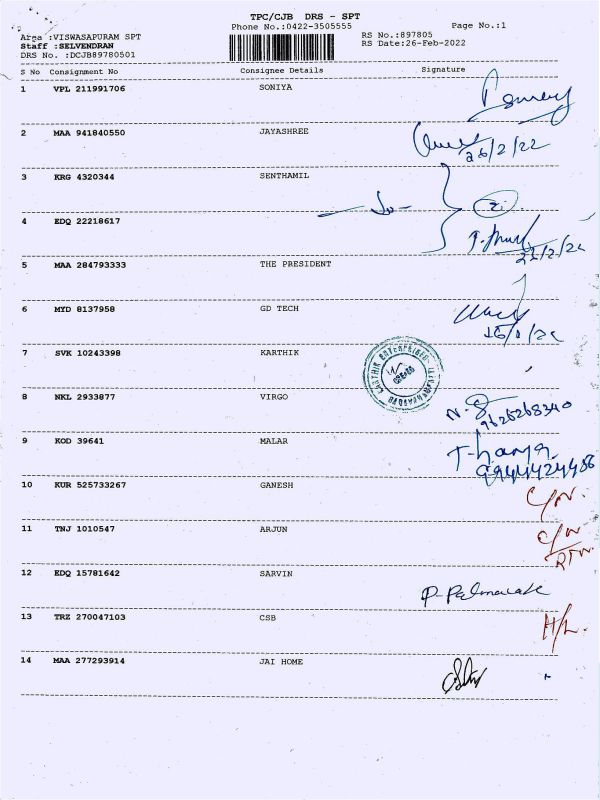 TPC/CJB DRS - SPT
Phone No.:0422-3505555 Page No.:1
Area :VISWASAPURAM SPT RS No.:897805
Staff :SELVENDRAN RS Date:26-Feb-2022
DRS No. :DCJB89780501
S No Consignment No Consignee Details Signature
1 VPL 211991706 SONIYA
2 MAA 941840550 JAYASHREE
26/2/22
3 KRG 4320344 SENTHAMIL
4 EDQ 22218617
5 MAA 284793333 THE PRESIDENT
6 MYD 8137958 GD TECH
7 SVK 10243398 KARTHIK
KARTHIK ENTERPRISES
8 NKL 2933877 VIRGO
9626268340
9 KOD 39641 MALAR
9944424486
10 KUR 525733267 GANESH
C/N.
11 TNJ 1010547 ARJUN
C/N
RTN.
12 EDQ 15781642 SARVIN
13 TRZ 270047103 CSB
H/L.
14 MAA 277293914 JAI HOME